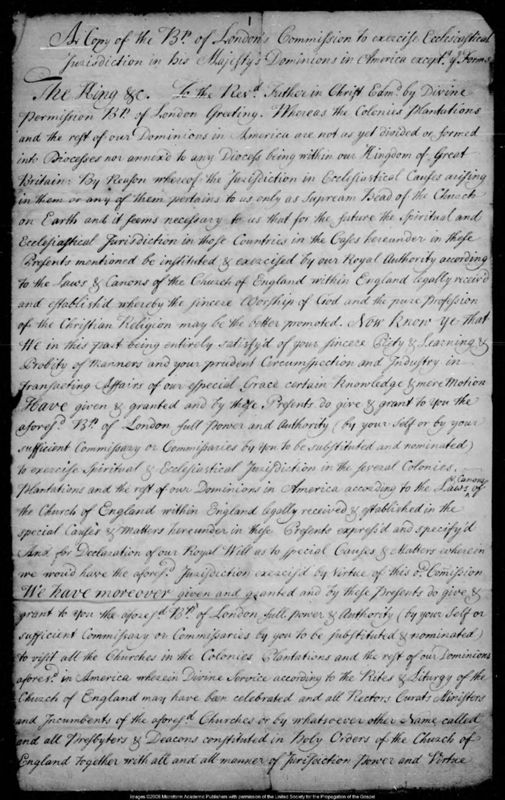 1
A Copy of the Bp. of London's Commission to exercise Ecclesiastical
Jurisdiction in his Majesty's Dominions in America except. ye Forms
The King &c. To the Revd. Father in Christ Edmd. by Divine
Permission Bp. of London Greeting. Whereas the Colonies Plantations
and the rest of our Dominions in America are not as yet divided or formed
into Diocesses nor annexd to any Diocess being within our Kingdom of Great
Britain: By Reason whereof the Jurisdiction in Ecclesiastical Causes arising
in them or any of them pertains to us only as Supream Head of the Church
on Earth and it seems necessary to us that for the future the Spiritual and
Ecclesiastical Jurisdiction in those Countries in the Cases hereunder in these
Presents mentioned be instituted & exercised by our Royal Authority according
to the Laws & Canons of the Church of England within England legally receiv'd
and establish'd whereby the sincere Worship of God and the pure Profession
of the Christian Religion may be the better promoted. Now know ye that
We in this part being entirely satisfy'd of your sincere Piety & Learning &
Probity of Manners and your prudent Circumspection and Industry in
transacting Affairs of our especial Grace certain Knowledge & mere Motion
Have given & granted and by these Presents do give & grant to you the
aforesd. Bp. of London full Power and Authority (by your Self or by your
sufficient Commissary or Commissaries by you to be substituted and nominated)
to exercise Spiritual & Ecclesiastical Jurisdiction in the several Colonies,
Plantations and the rest of our Dominions in America according to the Laws & Canons of
the Church of England within England legally received & established in the
special Causes & Matters hereunder in these Presents express'd and specify'd
And for Declaration of our Royal Will as to special Causes & Matters wherein
we would have the aforesd. Jurisdiction exercis'd by Virtue of this or. Comission
We have moreover given and granted and by these Presents do give &
grant to you the aforesd. Bp. of London full power & Authority (by your Self or
sufficient Commissary or Commissaries by you to be substituted & nominated)
to visit all the Churches in the Colonies Plantations and the rest of our Dominions
aforesd. in America wherein Divine Service according to the Rites & Liturgy of the
Church of England may have been celebrated and all Rectors Curats Ministers
and Incumbents of the aforesd. Churches or by whatsoever other Name called
and all Presbyters & Deacons constituted in Holy Orders of the Church of
England together with all and all manner of Jurisdiction Power and Virtue
Images ©2006 Microform Academic Publishers with permission of the United Society for the Propagation of the Gospel